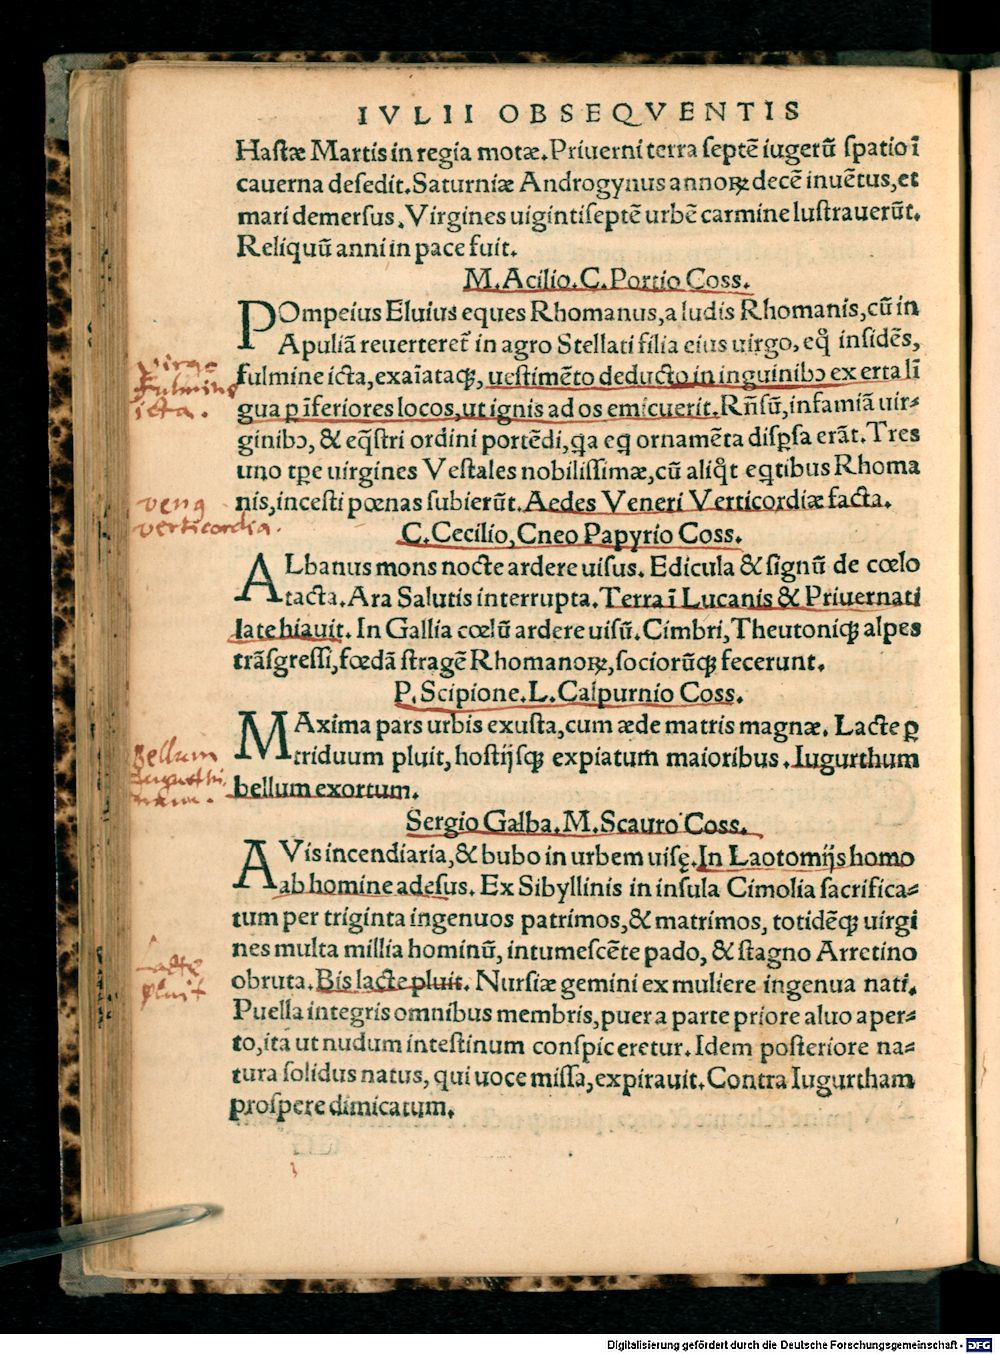 IVLII OBSEQVENTIS
Hastæ Martis in regia motæ. Priuerni terra septẽ iugerũ spatio ĩ
cauerna desedit. Saturniæ Androgynus annoꝝ decẽ inuẽtus, et
mari demersus. Virgines uigintiseptẽ urbẽ carmine lustrauerũt.
Reliquũ anni in pace fuit.
M. Acilio. C. Portio Coss.
POmpeius Eluius eques Rhomanus, a ludis Rhomanis, cũ in
Apuliã reuerteret̃ in agro Stellati filia eius uirgo, eq̃ insidẽs,
fulmine icta, exaĩataqꝫ, uestimẽto deducto in inguinibꝰ exerta lĩ
gua ꝑ ĩferiores locos, ut ignis ad os emicuerit. Rñsũ, infamiã uir-
ginibꝰ, & eq̃stri ordini portẽdi, q̃a eqꝰ ornamẽta disꝑsa erãt. Tres
uno tꝑe uirgines Vestales nobilissimæ, cũ aliq̃t eq̃tibus Rhoma
nis, incesti pœnas subierũt. Aedes Veneri Verticordiæ facta.
C. Cecilio, Cneo Papyrio Coss.
ALbanus mons nocte ardere uisus. Edicula & signũ de cœlo
tacta. Ara Salutis interrupta. Terra ĩ Lucanis & Priuernati
late hiauit. In Gallia cœlũ ardere uisũ. Cimbri, Theutoniqꝫ alpes
trãsgressi, fœdã stragẽ Rhomanoꝝ, sociorũqꝫ fecerunt.
P. Scipione. L. Calpurnio Coss.
MAxima pars urbis exusta, cum æde matris magnæ. Lacte ꝑ
triduum pluit, hostijsqꝫ expiatum maioribus. Iugurthum
bellum exortum.
Sergio Galba. M. Scauro Coss.
AVis incendiaria, & bubo in urbem uisę. In Laotomijs homo
ab homine adesus. Ex Sibyllinis in insula Cimolia sacrifica-
tum per triginta ingenuos patrimos, & matrimos, totidẽqꝫ uirgi
nes multa millia hominũ, intumescẽte pado, & stagno Arretino
obruta. Bis lacte pluit. Nursiæ gemini ex muliere ingenua nati.
Puella integris omnibus membris, puer a parte priore aluo aper-
to, ita ut nudum intestinum conspiceretur. Idem posteriore na-
tura solidus natus, qui uoce missa, expirauit. Contra Iugurtham
prospere dimicatum.
virgo
fulmine
icta.
venꝰ
verticordia.
Bellum
Iugurthi
num.
Lacte
pluit
Digitalisierung gefördert durch die Deutsche Forschungsgemeinschaft - DFG